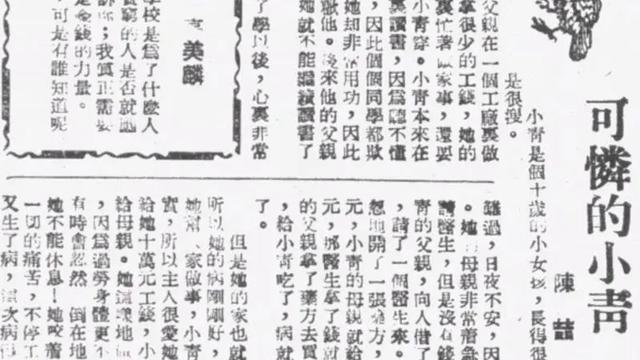 可憐的小青
陳喆
小青是個十歲的小女孩，長得很
是很瘦。
父親在一個工廠裏做
拿很少的工錢，她的
裏忙著做家事，還要
小青穿。小青本來在
裏讀書，因爲聽不懂
，因此個個同學都欺
她却非常用功，因此
他。後來他的父親
她就不能繼續讀書了
了學以後，心裏非常
難過，日夜不安，因
。她的母親非常着急
請醫生，但是沒有錢
青的父親，向人借了
，請了一個醫生來。
怱地開了一張藥方，
元，小青的母親就給
元，那醫生拿了錢就
的父親拿了藥方去買
，給小青吃了，病就
了。
但是她的家也就
所以她的病剛剛好，
她幫人家做事，小青
實，所以主人很愛她
給她十萬元工錢，小
給母親。她這樣地做
，因爲過勞身體更不
有時會忽然倒在地
她不能休息！她咬着
一切的痛苦，不停工
又生了病，這次病
美麟
學校是爲了什麼人
貧窮的人是否就
訴你；我眞正需要
是金錢的力量。
可是有誰知道呢